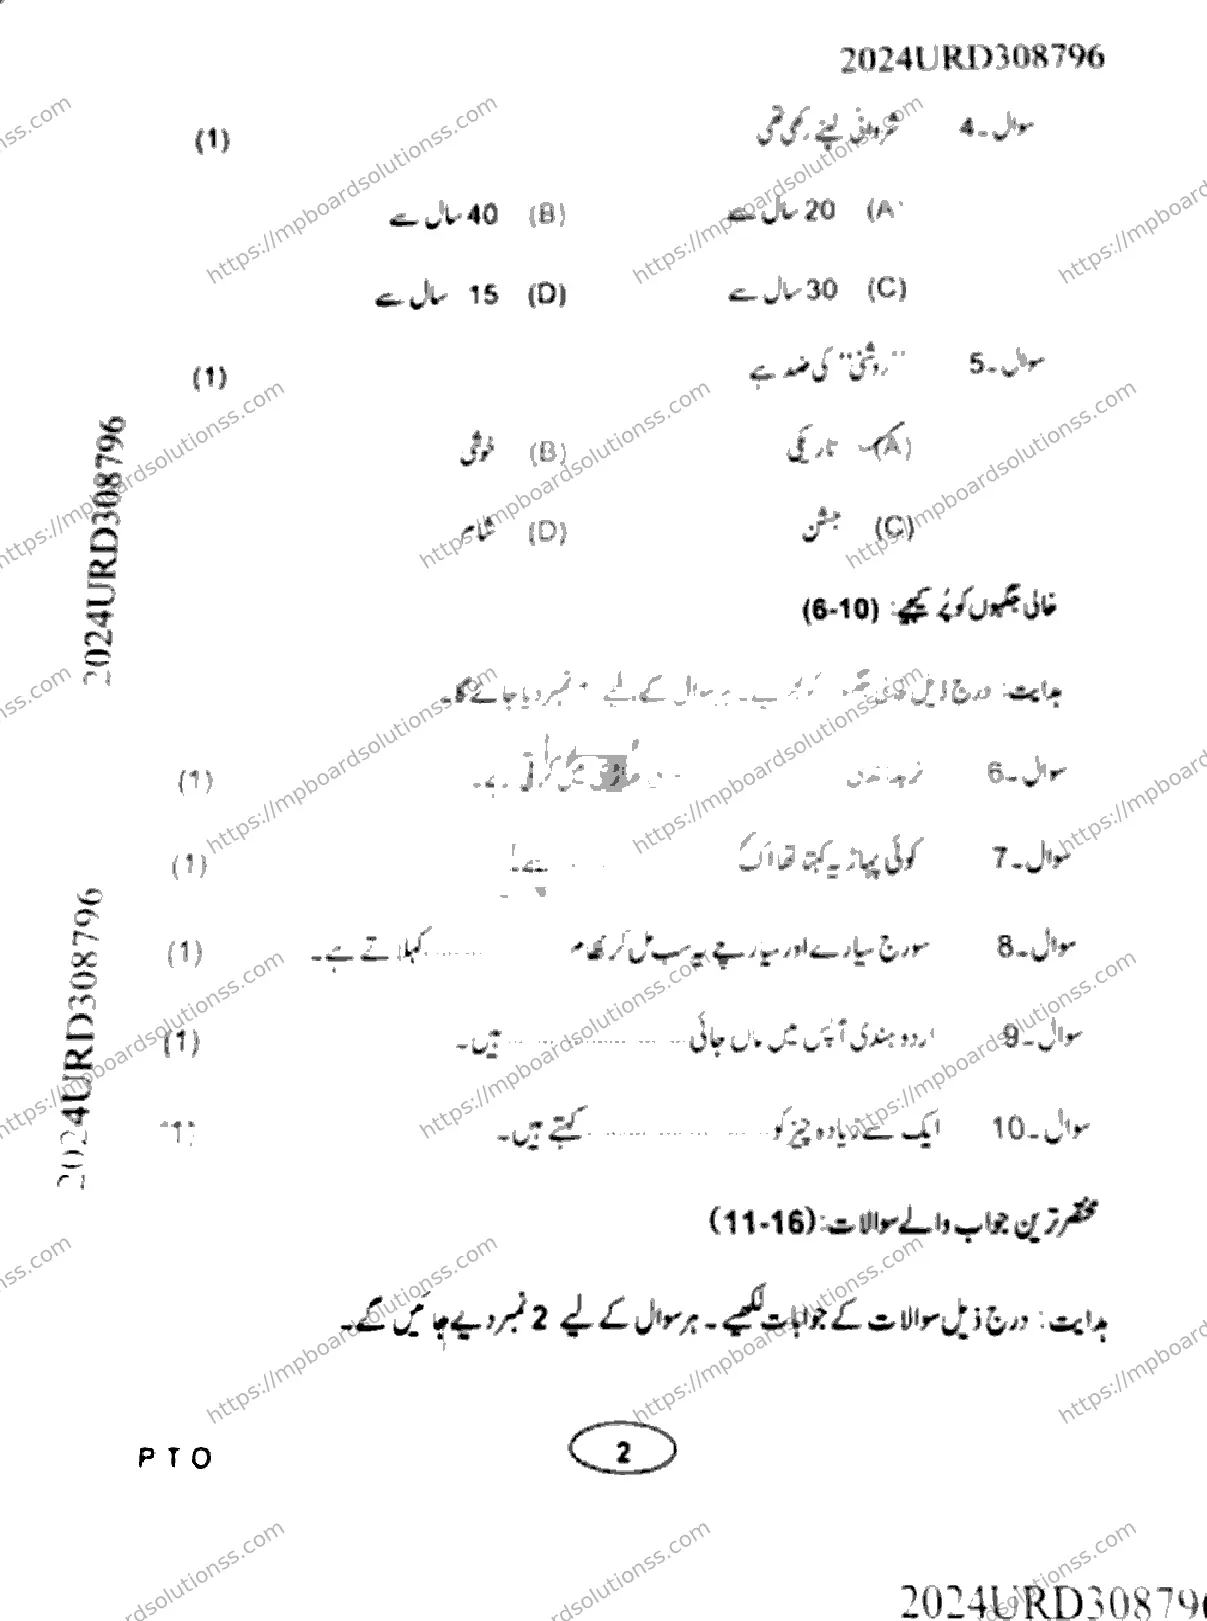 2024URD308796
سوال۔4 شروانی لپٹے رکھی تھی (1)
(A) 20 سال سے (B) 40 سال سے
(C) 30 سال سے (D) 15 سال سے
سوال۔5 "روشنی" کی ضد ہے (1)
(A) تاریکی (B) خوشی
(C) جشن (D) شام
خالی جگہوں کو پُر کیجیے: (6-10)
ہدایت: درج ذیل خالی ۔ ہر سوال کے لیے نمبر دیا جائے گا۔
سوال۔6 (1)
سوال۔7 کوئی پہاڑ یہ کہتا تھا اک ہے! (1)
سوال۔8 سورج سیارے اور سیارچے یہ سب مل کر نظام .......... کہلاتے ہے۔ (1)
سوال۔9 اردو ہندی آپس میں ماں جائی .......... ہیں۔ (1)
سوال۔10 ایک سے زیادہ چیز کو .......... کہتے ہیں۔ (1)
مختصر ترین جواب والے سوالات: (11-16)
ہدایت: درج ذیل سوالات کے جوابات لکھیے۔ ہر سوال کے لیے 2 نمبر دیے جائیں گے۔
P T O
2
2024URD308796
2024URD308796
2024URD308796
https://mpboardsolutionss.com